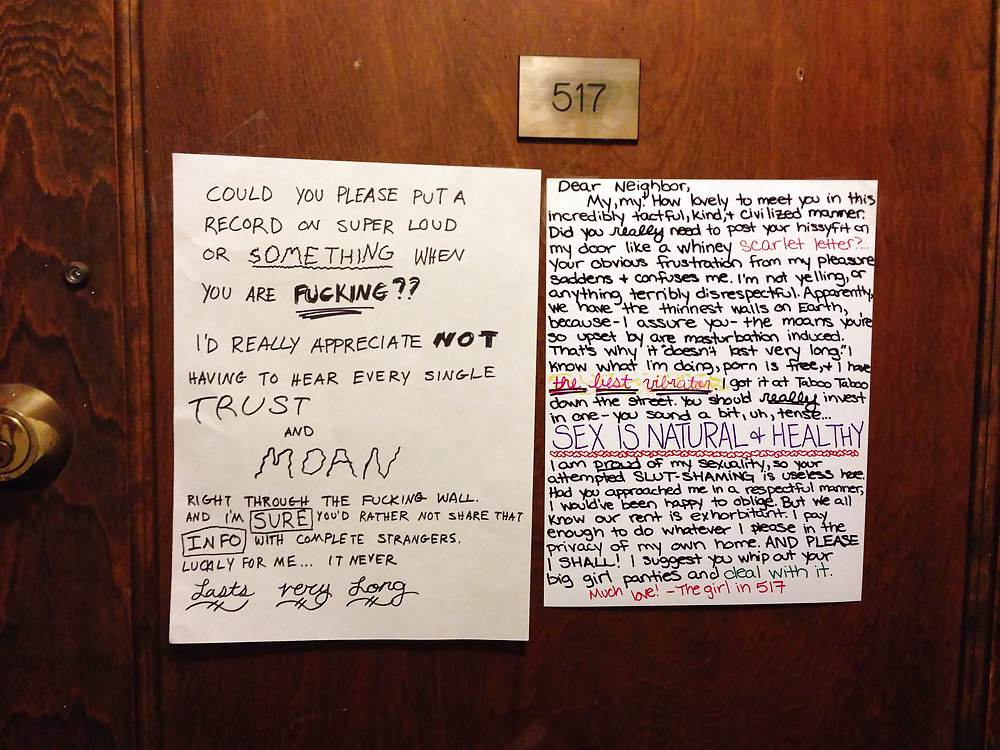 517
COULD YOU PLEASE PUT A
RECORD ON SUPER LOUD
OR SOMETHING WHEN
YOU ARE FUCKING??
I'D REALLY APPRECIATE NOT
HAVING TO HEAR EVERY SINGLE
TRUST
AND
MOAN
RIGHT THROUGH THE FUCKING WALL.
AND I'M SURE YOU'D RATHER NOT SHARE THAT
INFO WITH COMPLETE STRANGERS.
LUCKLY FOR ME... IT NEVER
Lasts very Long
Dear Neighbor,
My, my! How lovely to meet you in this
incredibly tactful, kind, + civilized manner.
Did you really need to post your hissyfit on
my door like a whiney scarlet letter?...
Your obvious frustration from my pleasure
saddens + confuses me. I'm not yelling, or
anything terribly disrespectful. Apparently,
we have the thinnest walls on Earth,
because - I assure you - the moans you're
so upset by are masturbation induced.
That's why it "doesn't last very long." I
know what I'm doing, porn is free, + I have
the best vibrator. I got it at Taboo Taboo
down the street. You should really invest
in one - you sound a bit, uh, tense...
SEX IS NATURAL + HEALTHY
I am proud of my sexuality, so your
attempted SLUT-SHAMING is useless here.
Had you approached me in a respectful manner,
I would've been happy to oblige. But we all
know our rent is exhorbitant. I pay
enough to do whatever I please in the
privacy of my own home. AND PLEASE
I SHALL! I suggest you whip out your
big girl panties and deal with it.
Much love! - The girl in 517